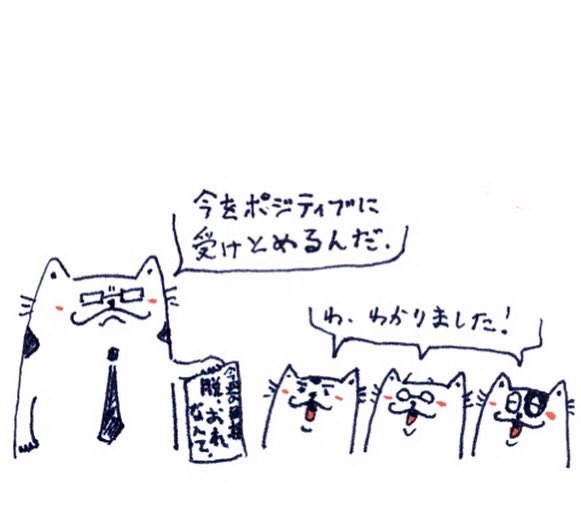 今をポジティブに
受けとめるんだ.
わ、わかりました!
今週の目標
脱・おれ
なんて.